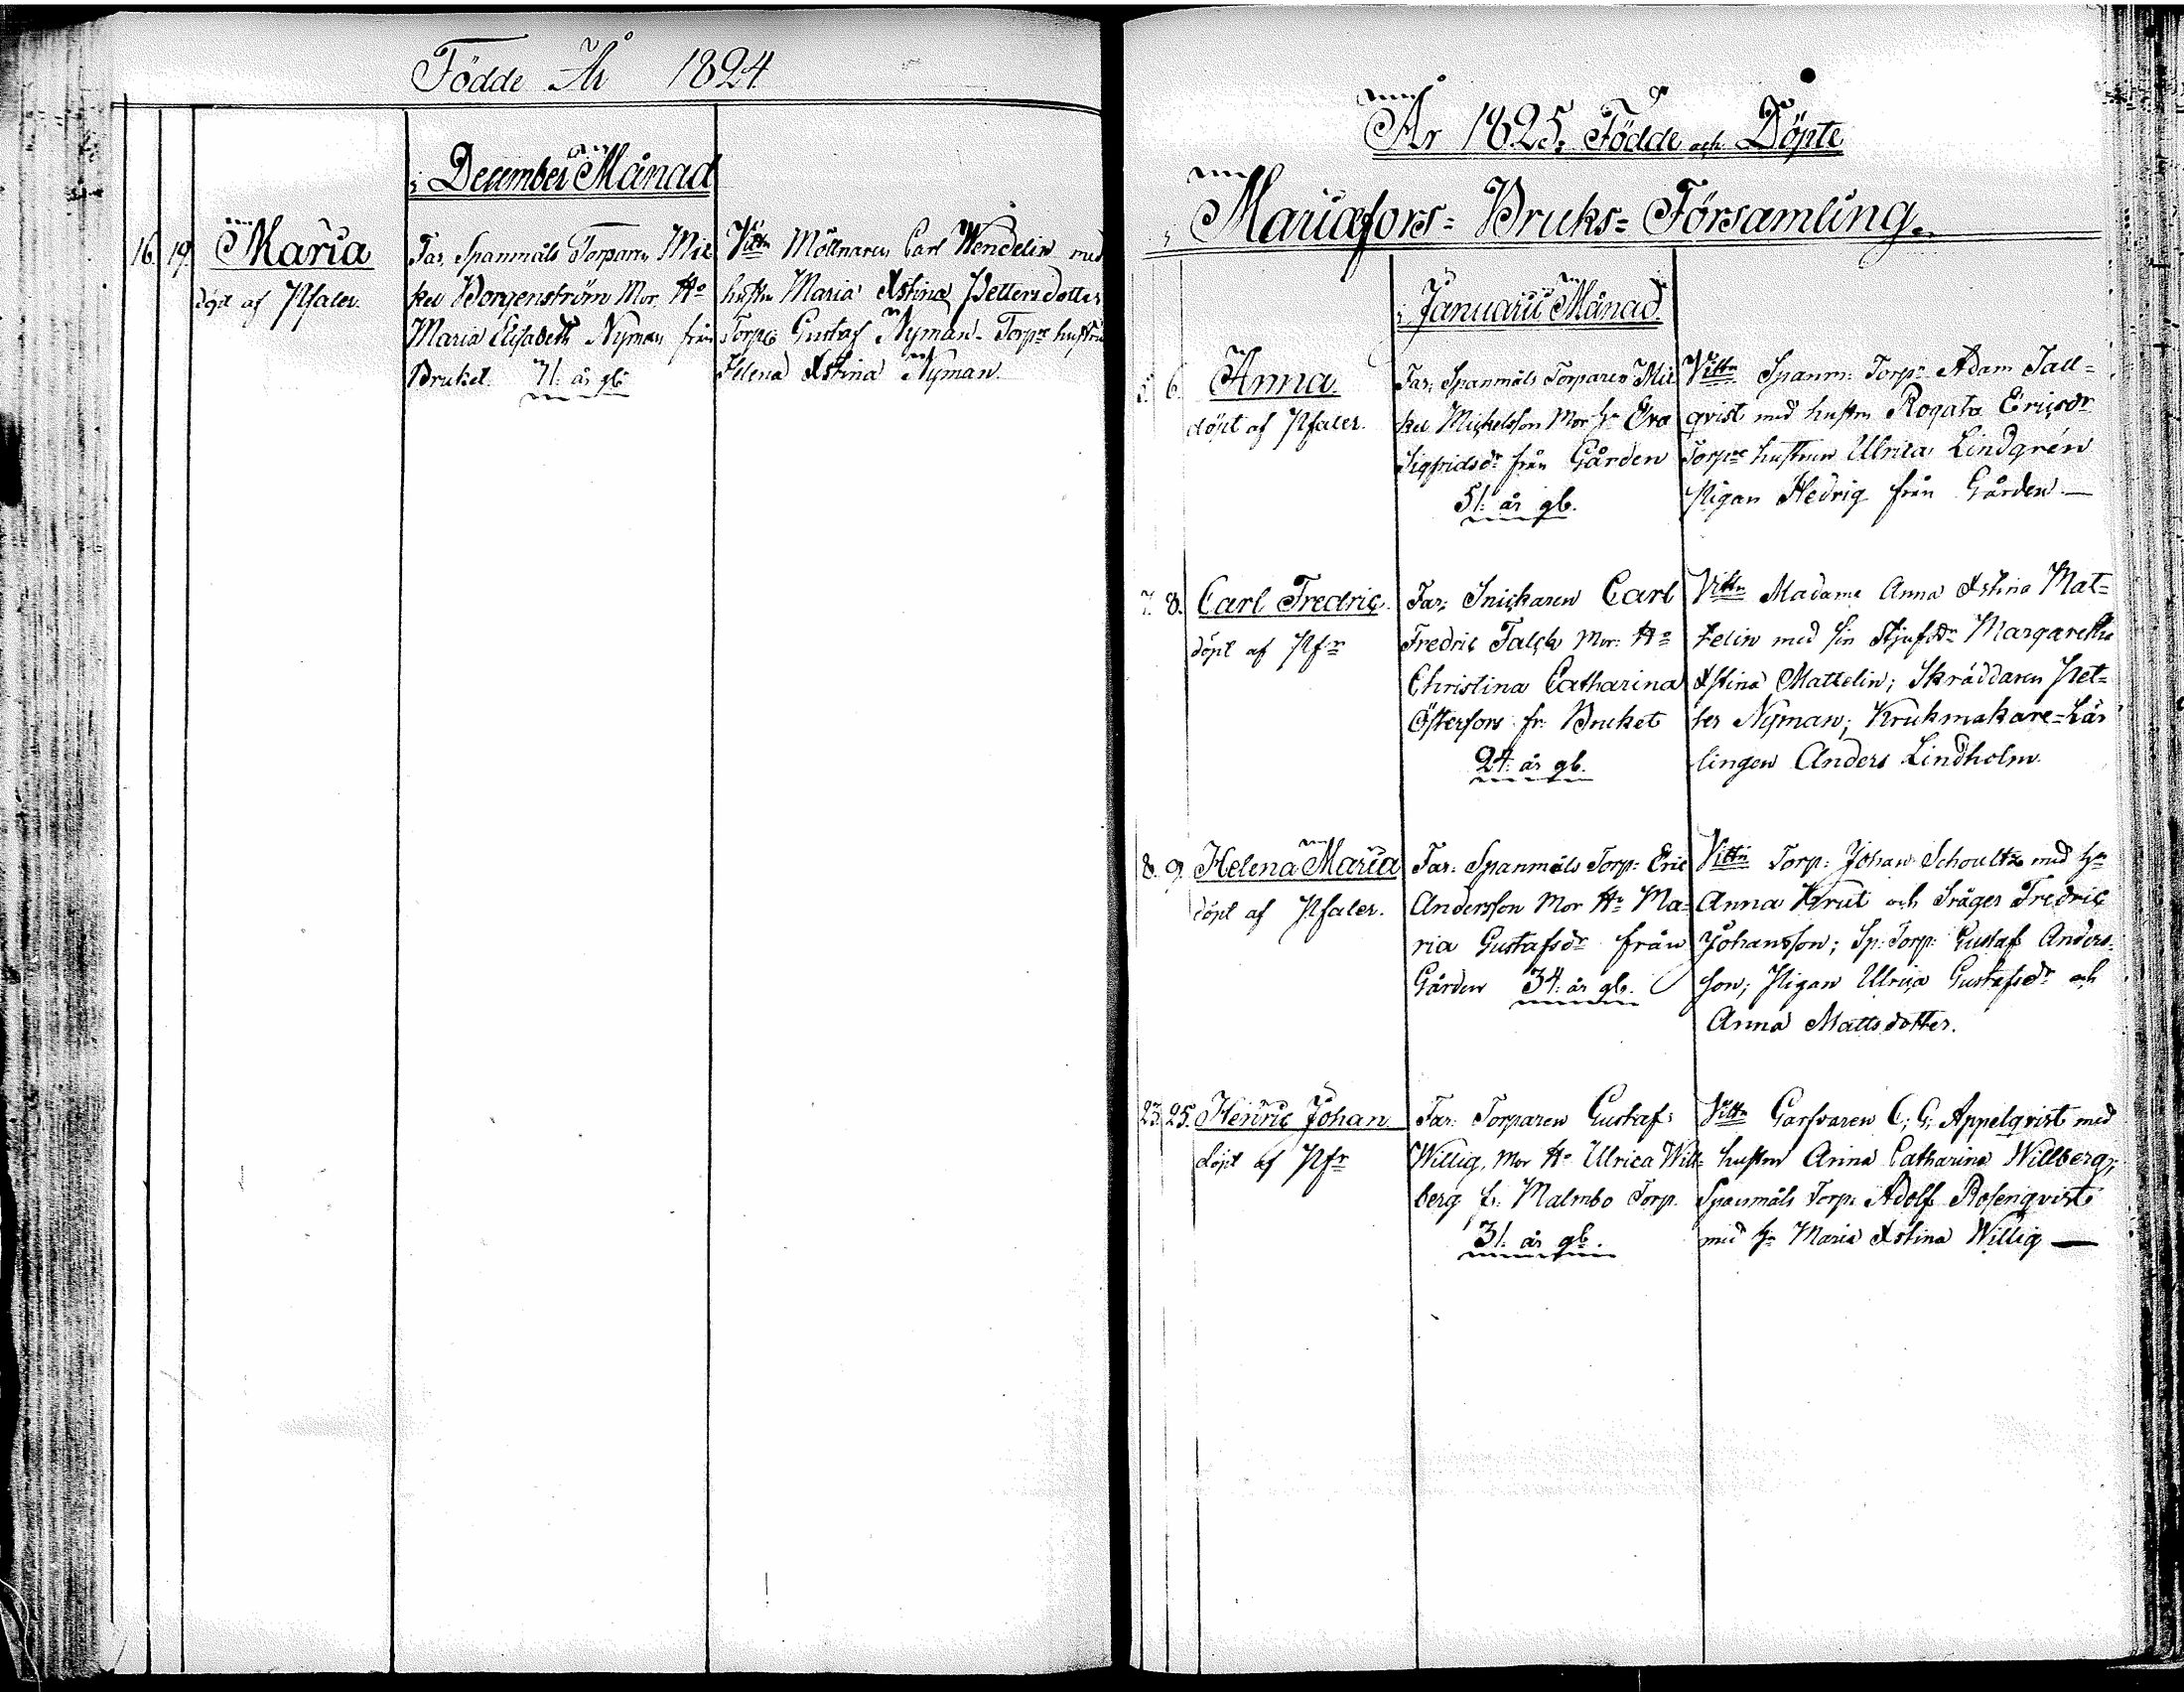 Födde År 1824
i December Månad
16. 19. Maria
döpt af Pfaler.
Far; Spanmåls Torparen Mic
kel Borgenström Mor. Ho
Maria Elisabeth Nyman från
Bruket. 71: år gl:
Vittn Möllnaren Carl Wendelin med
hustrn Maria Xstina Pettersdotter
Torpr Gustaf Nyman. Torprs hustru
Helena Xstina Nyman.
År 1825. Födde och Döpte
i Mariæfors=Bruks=Församling.
i Januarii Månad.
5. 6. Anna
döpt af Pfaler.
Far; Spanmåls Torparen Mic
kel Mickelsson Mor Ho Eva
Sigfridsdr från Gården
51: år gl.
Vittn Spanm: Torpr Adam Tall=
qvist med hustrn Rogata Ericsdr
Torprs hustrun Ulrica Lindgrén
Pigan Hedvig från Gården—
7. 8. Carl Fredric
döpt af Pfr
Far; Snickaren Carl
Fredric Falck Mor: Ho
Christina Catharina
Österfors fr: Bruket
24: år gl.
Vittn Madame Anna Xstina Mat=
telin med sin Stjufdr Margaretha
Xstina Mattelin; Skräddaren Pet=
ter Nyman; Krukmakare=Lär
lingen Anders Lindholm.
8. 9. Helena Maria
döpt af Pfaler.
Far: Spanmåls Torp: Eric
Andersson Mor Ho Ma=
ria Gustafsdr från
Gården 34: år gl.
Vittn Torp: Johan Schoultz med Ho
Anna Krut och Såger Fredric
Johansson; Sp: Torp: Gustaf Anders=
son; Pigan Ulrica Gustafsdr och
Anna Mattsdotter.
23. 25. Henric Johan
döpt af Pfr
Far: Torparen Gustaf
Willig, Mor Ho Ulrica Will=
berg fr: Malmbo Torp.
31: år gl.
Vittn Garfvaren C; G; Appelqvist med
hustrn Anna Catharina Willberg;
Spanmåls Torp: Adolf Rosenqvist
med Ho Maria Xstina Willig—